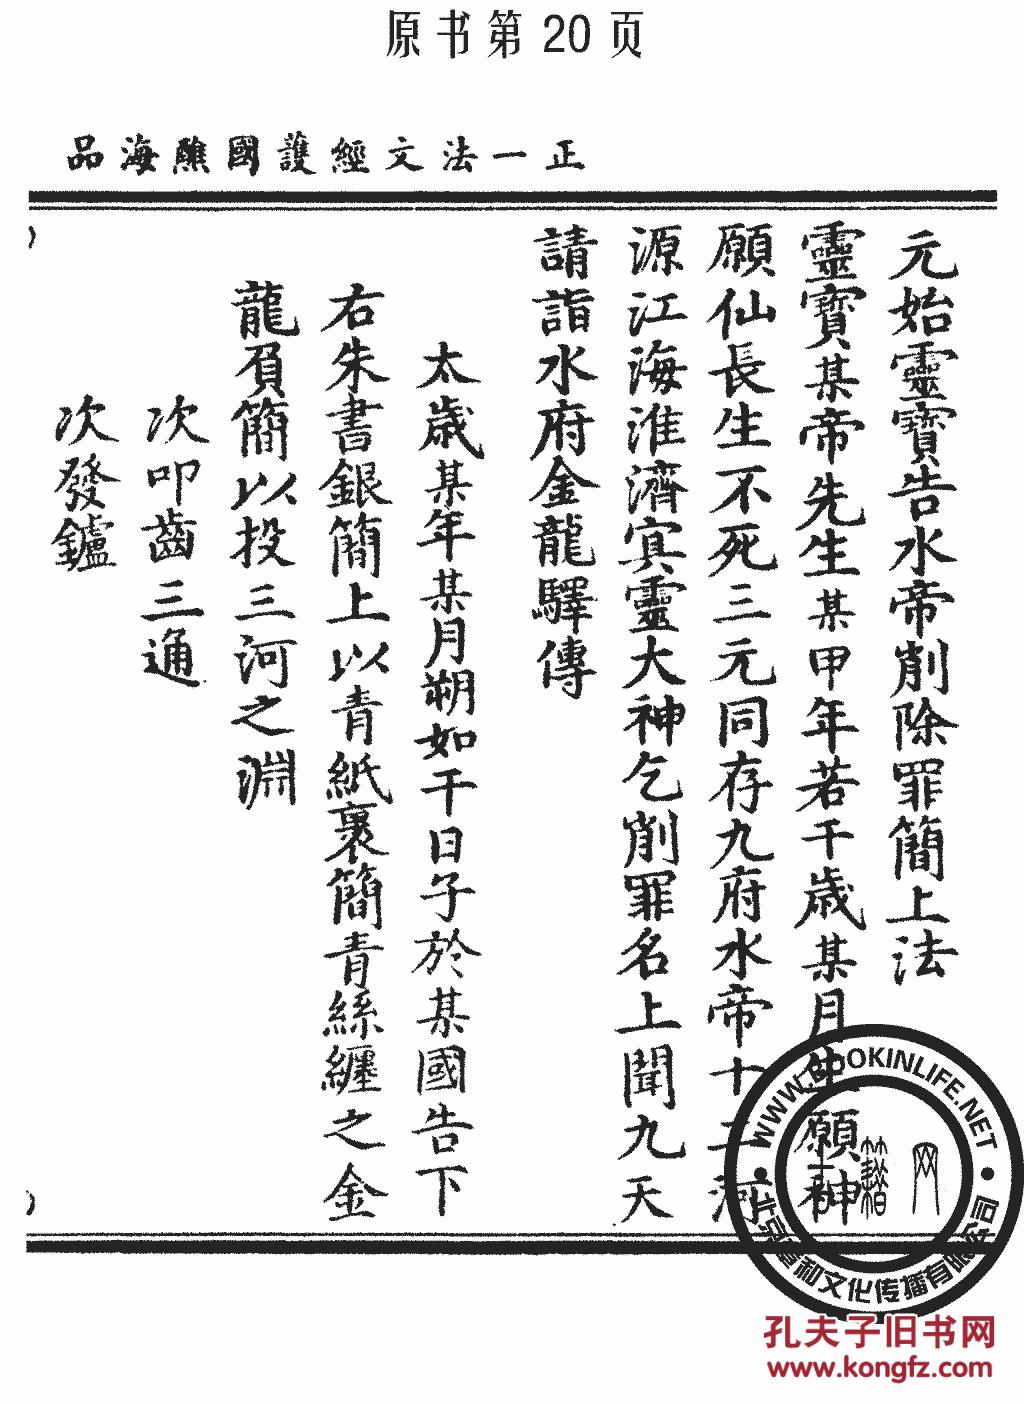 原书第 20 页
正一法文經護國醮海品
元始靈寶告水帝削除罪簡上法
靈寶某帝先生某甲年若干歲某月生願神
願仙長生不死三元同存九府水帝十二河
源江海淮濟㝠靈大神乞削罪名上聞九天
請詣水府金龍驛傳
太歲某年某月朔如干日子於某國告下
右朱書銀簡上以青紙裹簡青絲纏之金
龍負簡以投三河之淵
次叩齒三通
次發鑪
WWW.BOOKINLIFE.NET
和文化传播有限公司
孔夫子旧书网
www.kongfz.com